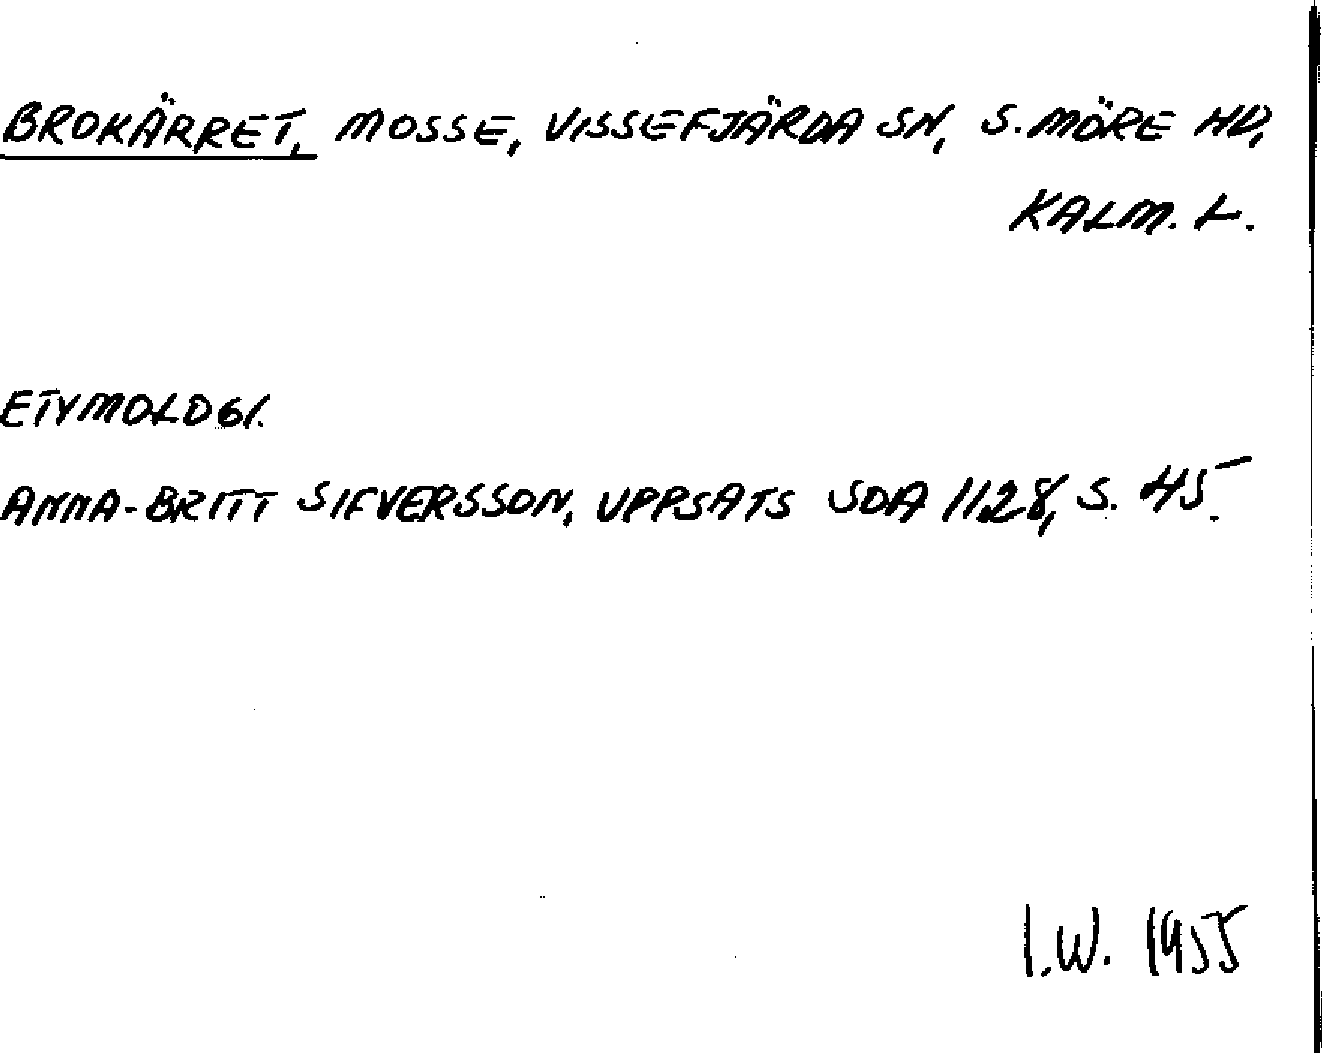 BROKÄRRET, MOSSE, VISSEFJÄRDA SN, S. MÖRE HD,
KALM. L.
ETYMOLOGI.
ANNA-BRITT SIFVERSSON, UPPSATS SOA 1128, S. 45.
I.W. 1955